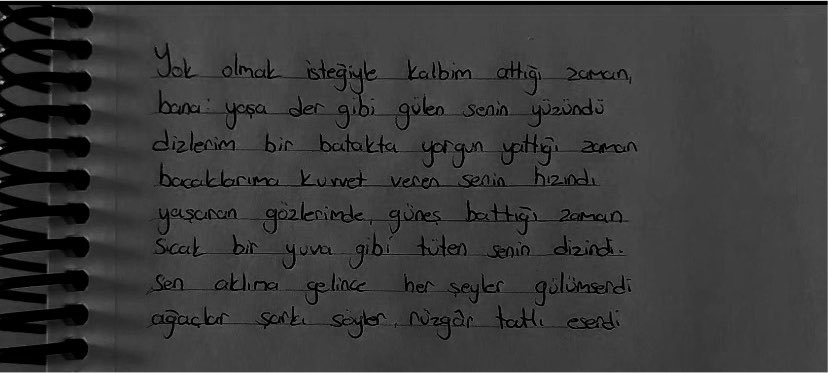 Yok olmak isteğiyle kalbim attığı zaman,
bana: yaşa der gibi gülen senin yüzündü
dizlerim bir batakta yorgun yattığı zaman
bacaklarıma kuvvet veren senin hızındı
yaşaran gözlerimde, güneş battığı zaman
Sıcak bir yuva gibi tüten senin dizindi.
Sen aklıma gelince her şeyler gülümserdi
ağaçlar şarkı söyler, rüzgâr tatlı eserdi